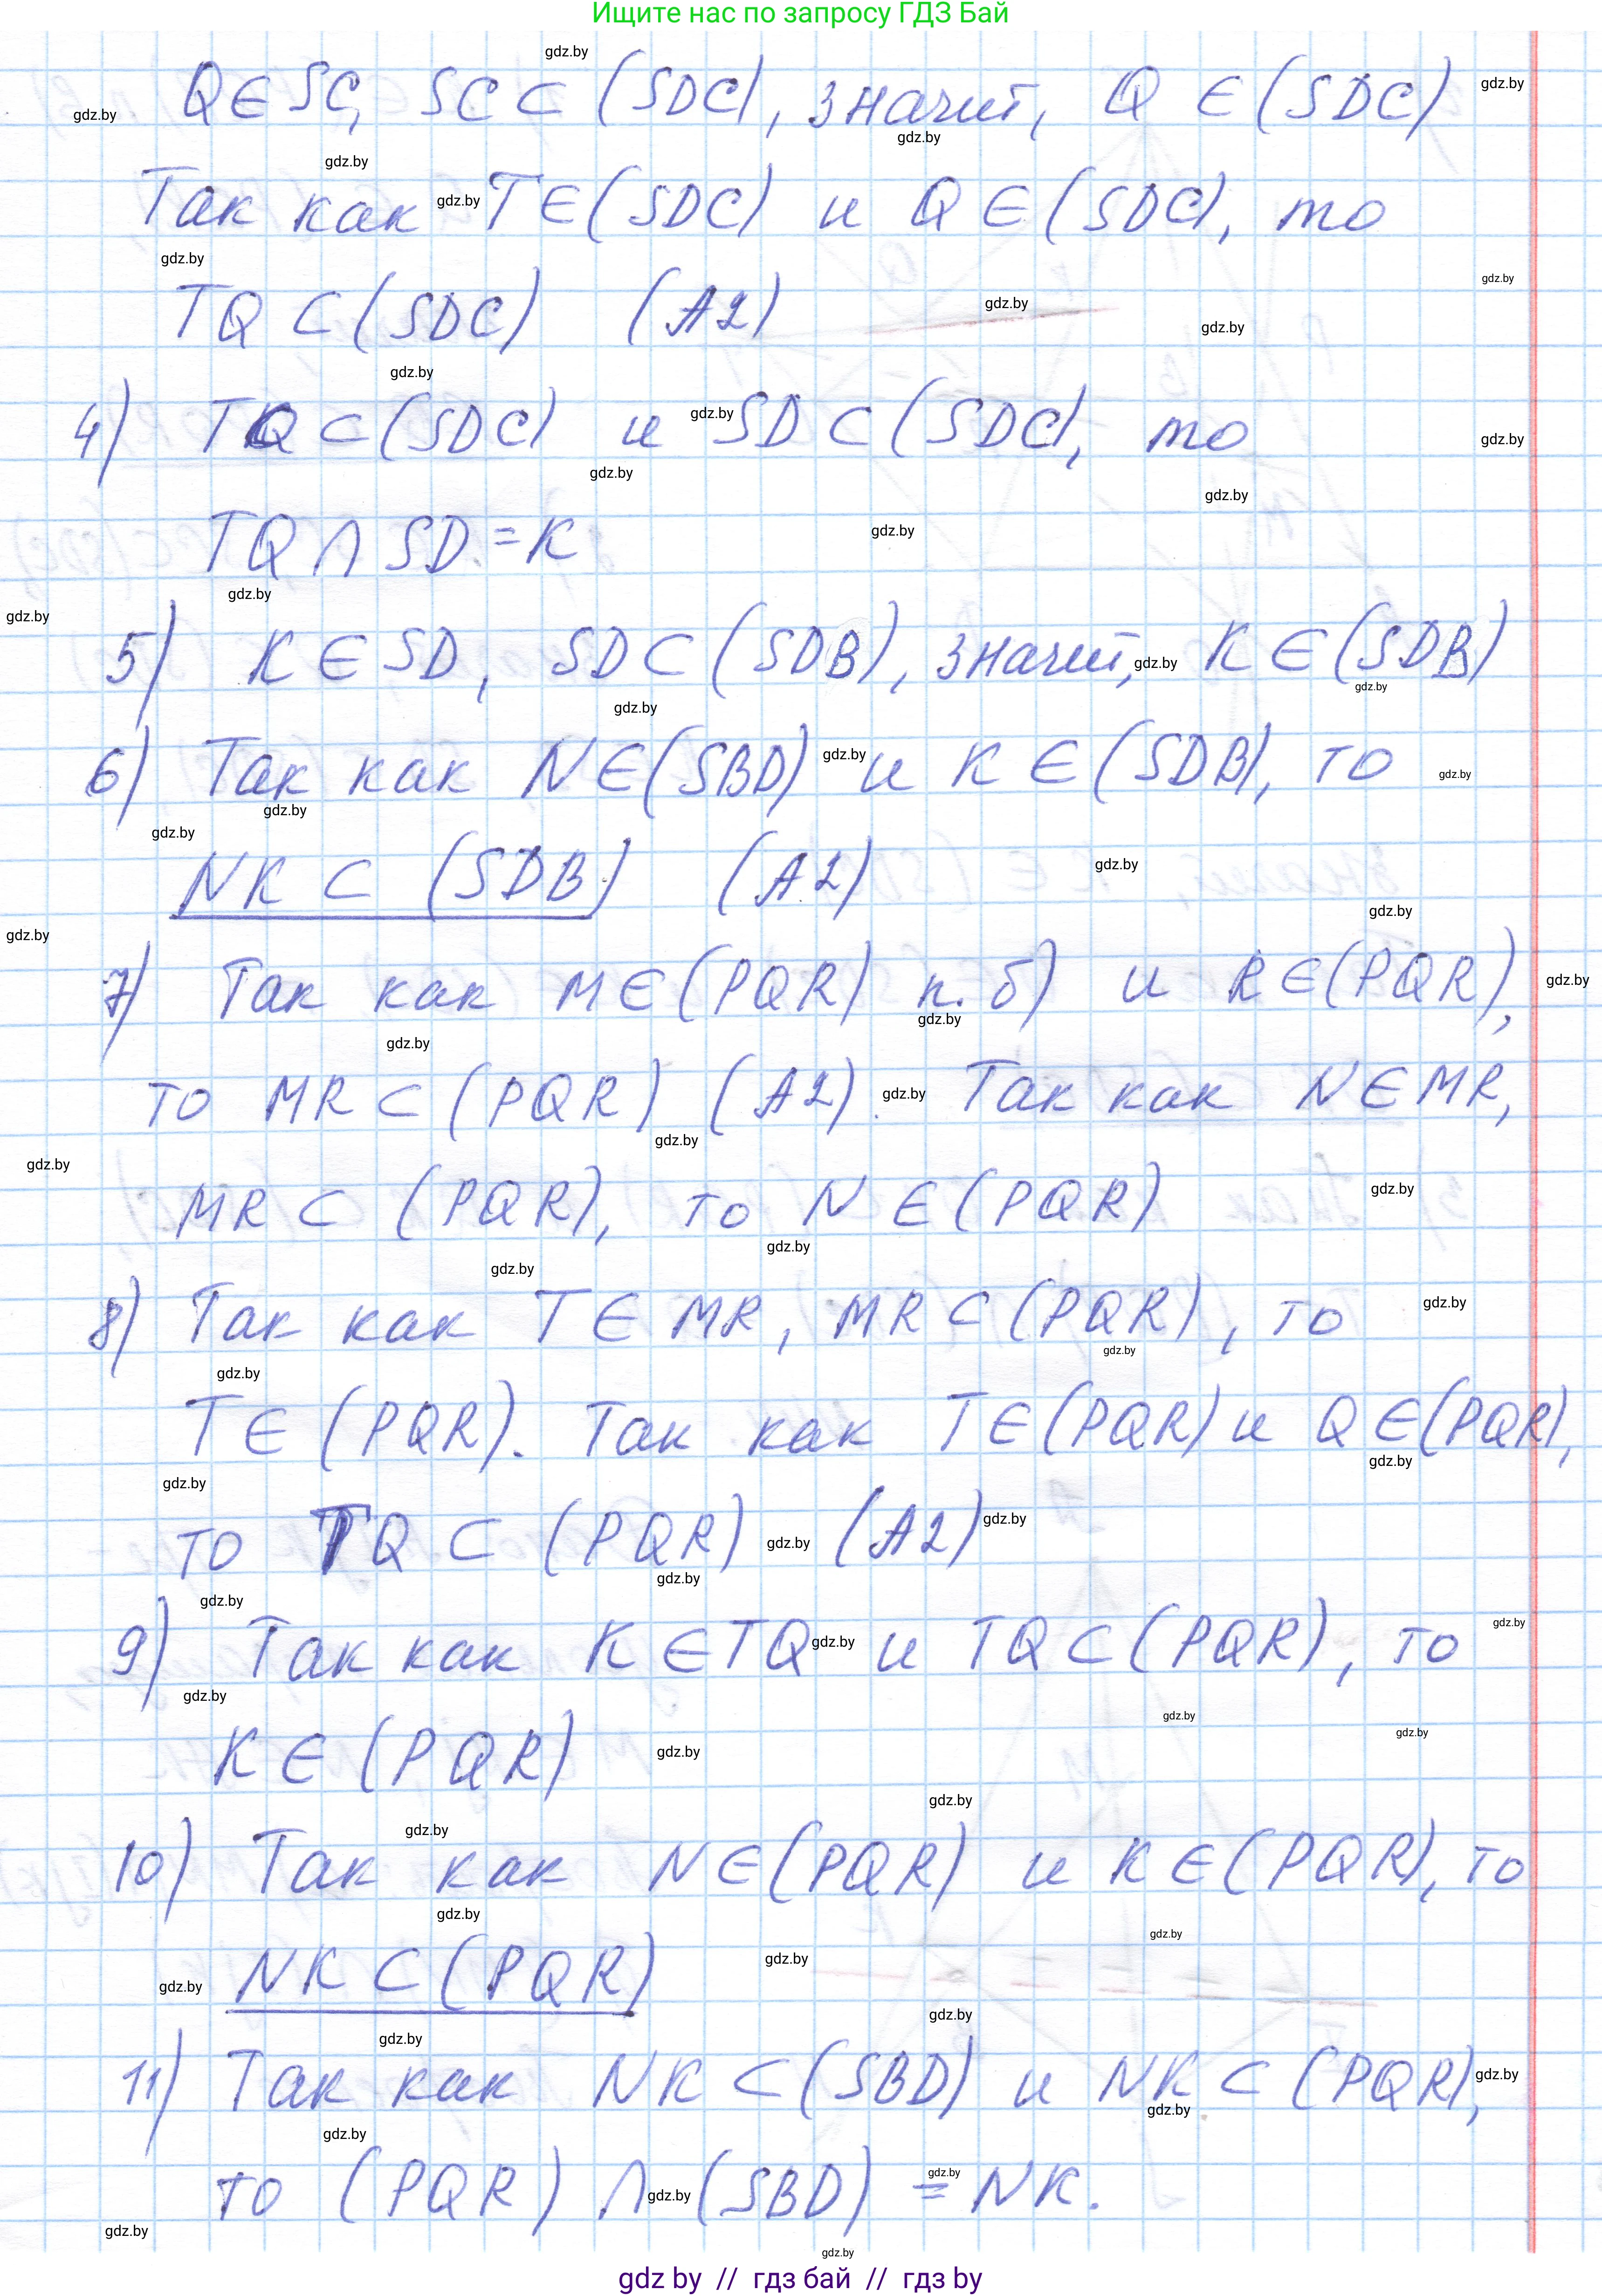 Ищите нас по запросу ГДЗ Бай
Q∈SC, SC⊂(SDC), значит, Q∈(SDC)
Так как T∈(SDC) и Q∈(SDC), то
TQ⊂(SDC) (А2)
4) TQ⊂(SDC) и SD⊂(SDC), то
TQ∩SD=K
5) K∈SD, SD⊂(SDB), значит, K∈(SDB)
6) Так как N∈(SBD) и K∈(SDB), то
NK⊂(SDB) (А2)
7) Так как M∈(PQR) п.б) и R∈(PQR),
то MR⊂(PQR) (А2). Так как N∈MR,
MR⊂(PQR), то N∈(PQR)
8) Так как T∈MR, MR⊂(PQR), то
T∈(PQR). Так как T∈(PQR) и Q∈(PQR),
то TQ⊂(PQR) (А2)
9) Так как K∈TQ и TQ⊂(PQR), то
K∈(PQR)
10) Так как N∈(PQR) и K∈(PQR), то
NK⊂(PQR)
11) Так как NK⊂(SBD) и NK⊂(PQR),
то (PQR)∩(SBD)=NK.
gdz by // гдз бай // гдз by